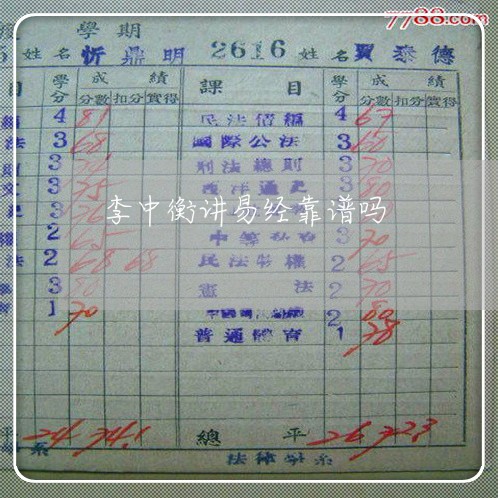 7788.com
學期
姓名 忻鼎明 2616 姓名 賈泰德
目 學分 成績 課目 學分 成績
分數 扣分 實得 分數 扣分 實得
4 81 民法債編 4 67
法 3 68 國際公法 3 60
3 刑法總則 3 70
3 75 西洋通史 3 80
3 76
李中衡讲易经靠谱吗
2 65 3 70
法 2 68 68 民法物權 2 65
3 80 憲法 2 70
1 70 2 80
普通體育 1 78
平 24 74.1 總平 26 72.3
系 法律學系